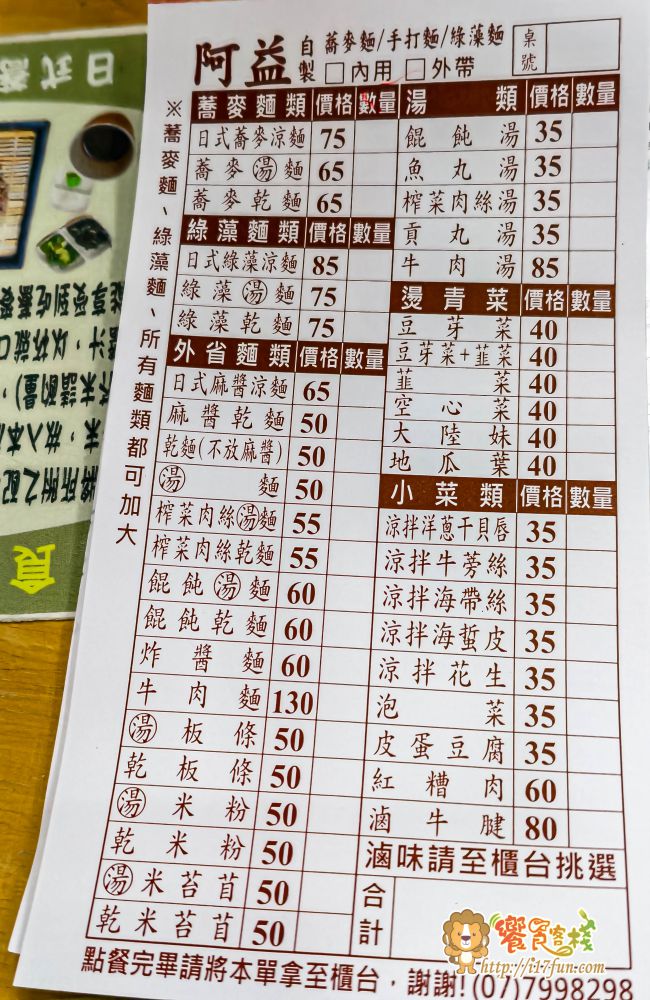 阿益 自製 蕎麥麵/手打麵/綠藻麵
□內用 □外帶
桌號
※蕎麥麵、綠藻麵、所有麵類都可加大
蕎麥麵類 價格 數量
日式蕎麥涼麵 75
蕎麥湯麵 65
蕎麥乾麵 65
綠藻麵類 價格 數量
日式綠藻涼麵 85
綠藻湯麵 75
綠藻乾麵 75
外省麵類 價格 數量
日式麻醬涼麵 65
麻醬乾麵 50
乾麵(不放麻醬) 50
湯麵 50
榨菜肉絲湯麵 55
榨菜肉絲乾麵 55
餛飩湯麵 60
餛飩乾麵 60
炸醬麵 60
牛肉麵 130
湯板條 50
乾板條 50
湯米粉 50
乾米粉 50
湯米苔苜 50
乾米苔苜 50
湯類 價格 數量
餛飩湯 35
魚丸湯 35
榨菜肉絲湯 35
貢丸湯 35
牛肉湯 85
燙青菜 價格 數量
豆芽菜 40
豆芽菜+韮菜 40
韮菜 40
空心菜 40
大陸妹 40
地瓜葉 40
小菜類 價格 數量
涼拌洋蔥干貝唇 35
涼拌牛蒡絲 35
涼拌海帶絲 35
涼拌海蜇皮 35
涼拌花生 35
泡菜 35
皮蛋豆腐 35
紅糟肉 60
滷牛腱 80
滷味請至櫃台挑選
合計
點餐完畢請將本單拿至櫃台，謝謝!(07)7998298
日式蕎
食
饗食客棧
http://i17fun.com